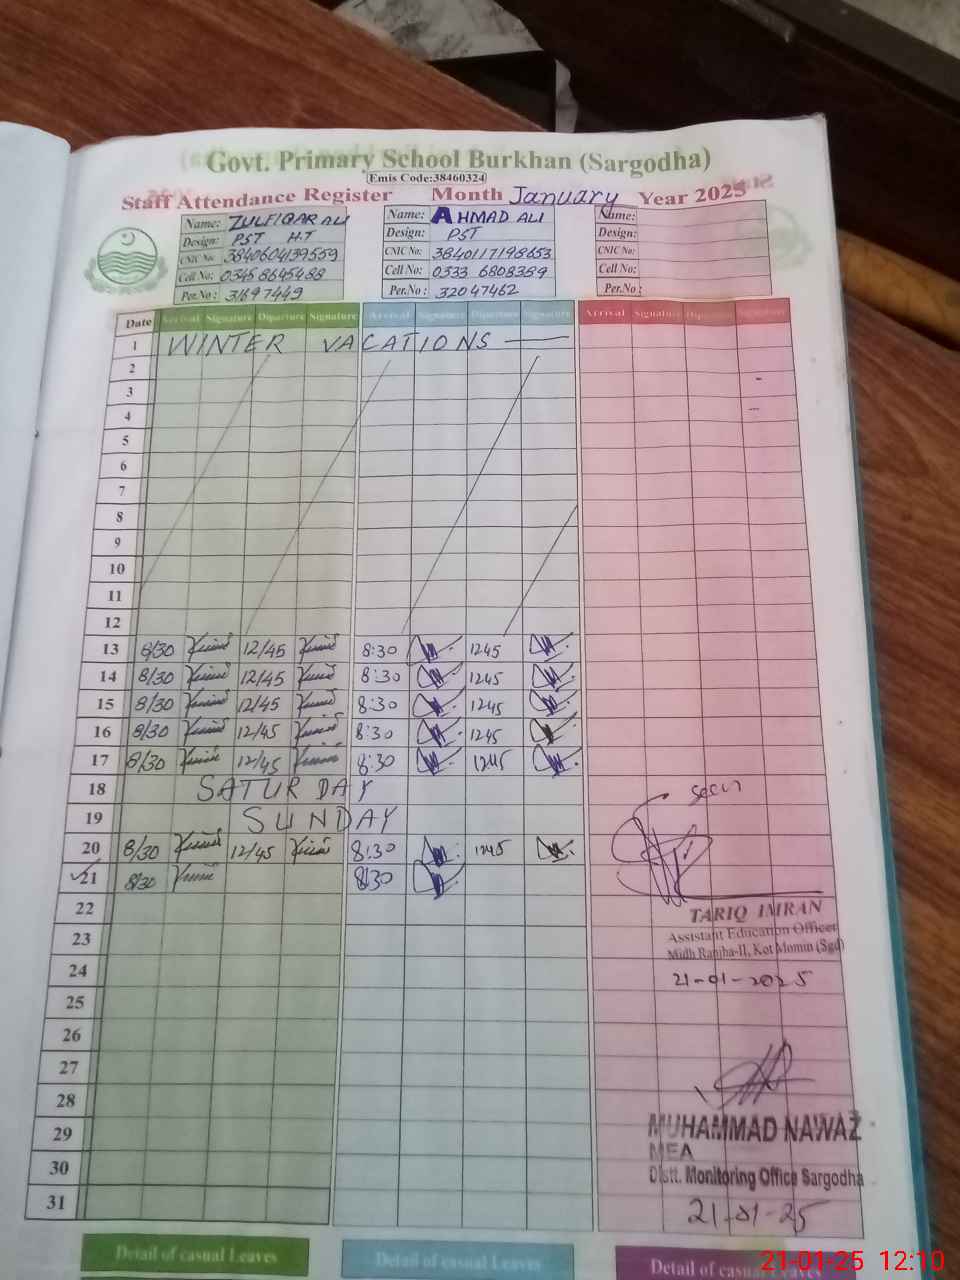 Govt. Primary School Burkhan (Sargodha)
Emis Code:38460324
Staff Attendance Register Month January Year 2025
Name: ZULFIQAR ALI Name: AHMAD ALI Name:
Design: PST H.T Design: PST Design:
CNIC No: 3840604139559 CNIC No: 3840117198653 CNIC No:
Cell No: 03458645488 Cell No: 0333 6808389 Cell No:
Per.No : 31697449 Per.No : 32047462 Per.No :
Date Arrival Signature Diparture Signature Arrival Signature Diparture Signature Arrival Signature Diparture Signature
1 WINTER VACATIONS
2
3
4
5
6
7
8
9
10
11
12
13 8/30 12/45 8:30 1245
14 8/30 12/45 8:30 1245
15 8/30 12/45 8:30 1245
16 8/30 12/45 8:30 1245
17 8/30 12/45 8:30 1245
18 SATURDAY seen
19 SUNDAY
20 8/30 12/45 8:30 1245
21 8/30 8:30
22 TARIQ IMRAN
23 Assistant Education Officer
Midh Ranjha-II, Kot Momin (Sgd)
24 21-01-2025
25
26
27
28
29 MUHAMMAD NAWAZ
MEA
30 Distt. Monitoring Office Sargodha
31 21-01-25
Detail of casual Leaves Detail of casual Leaves Detail of casual Leaves
21-01-25 12:10